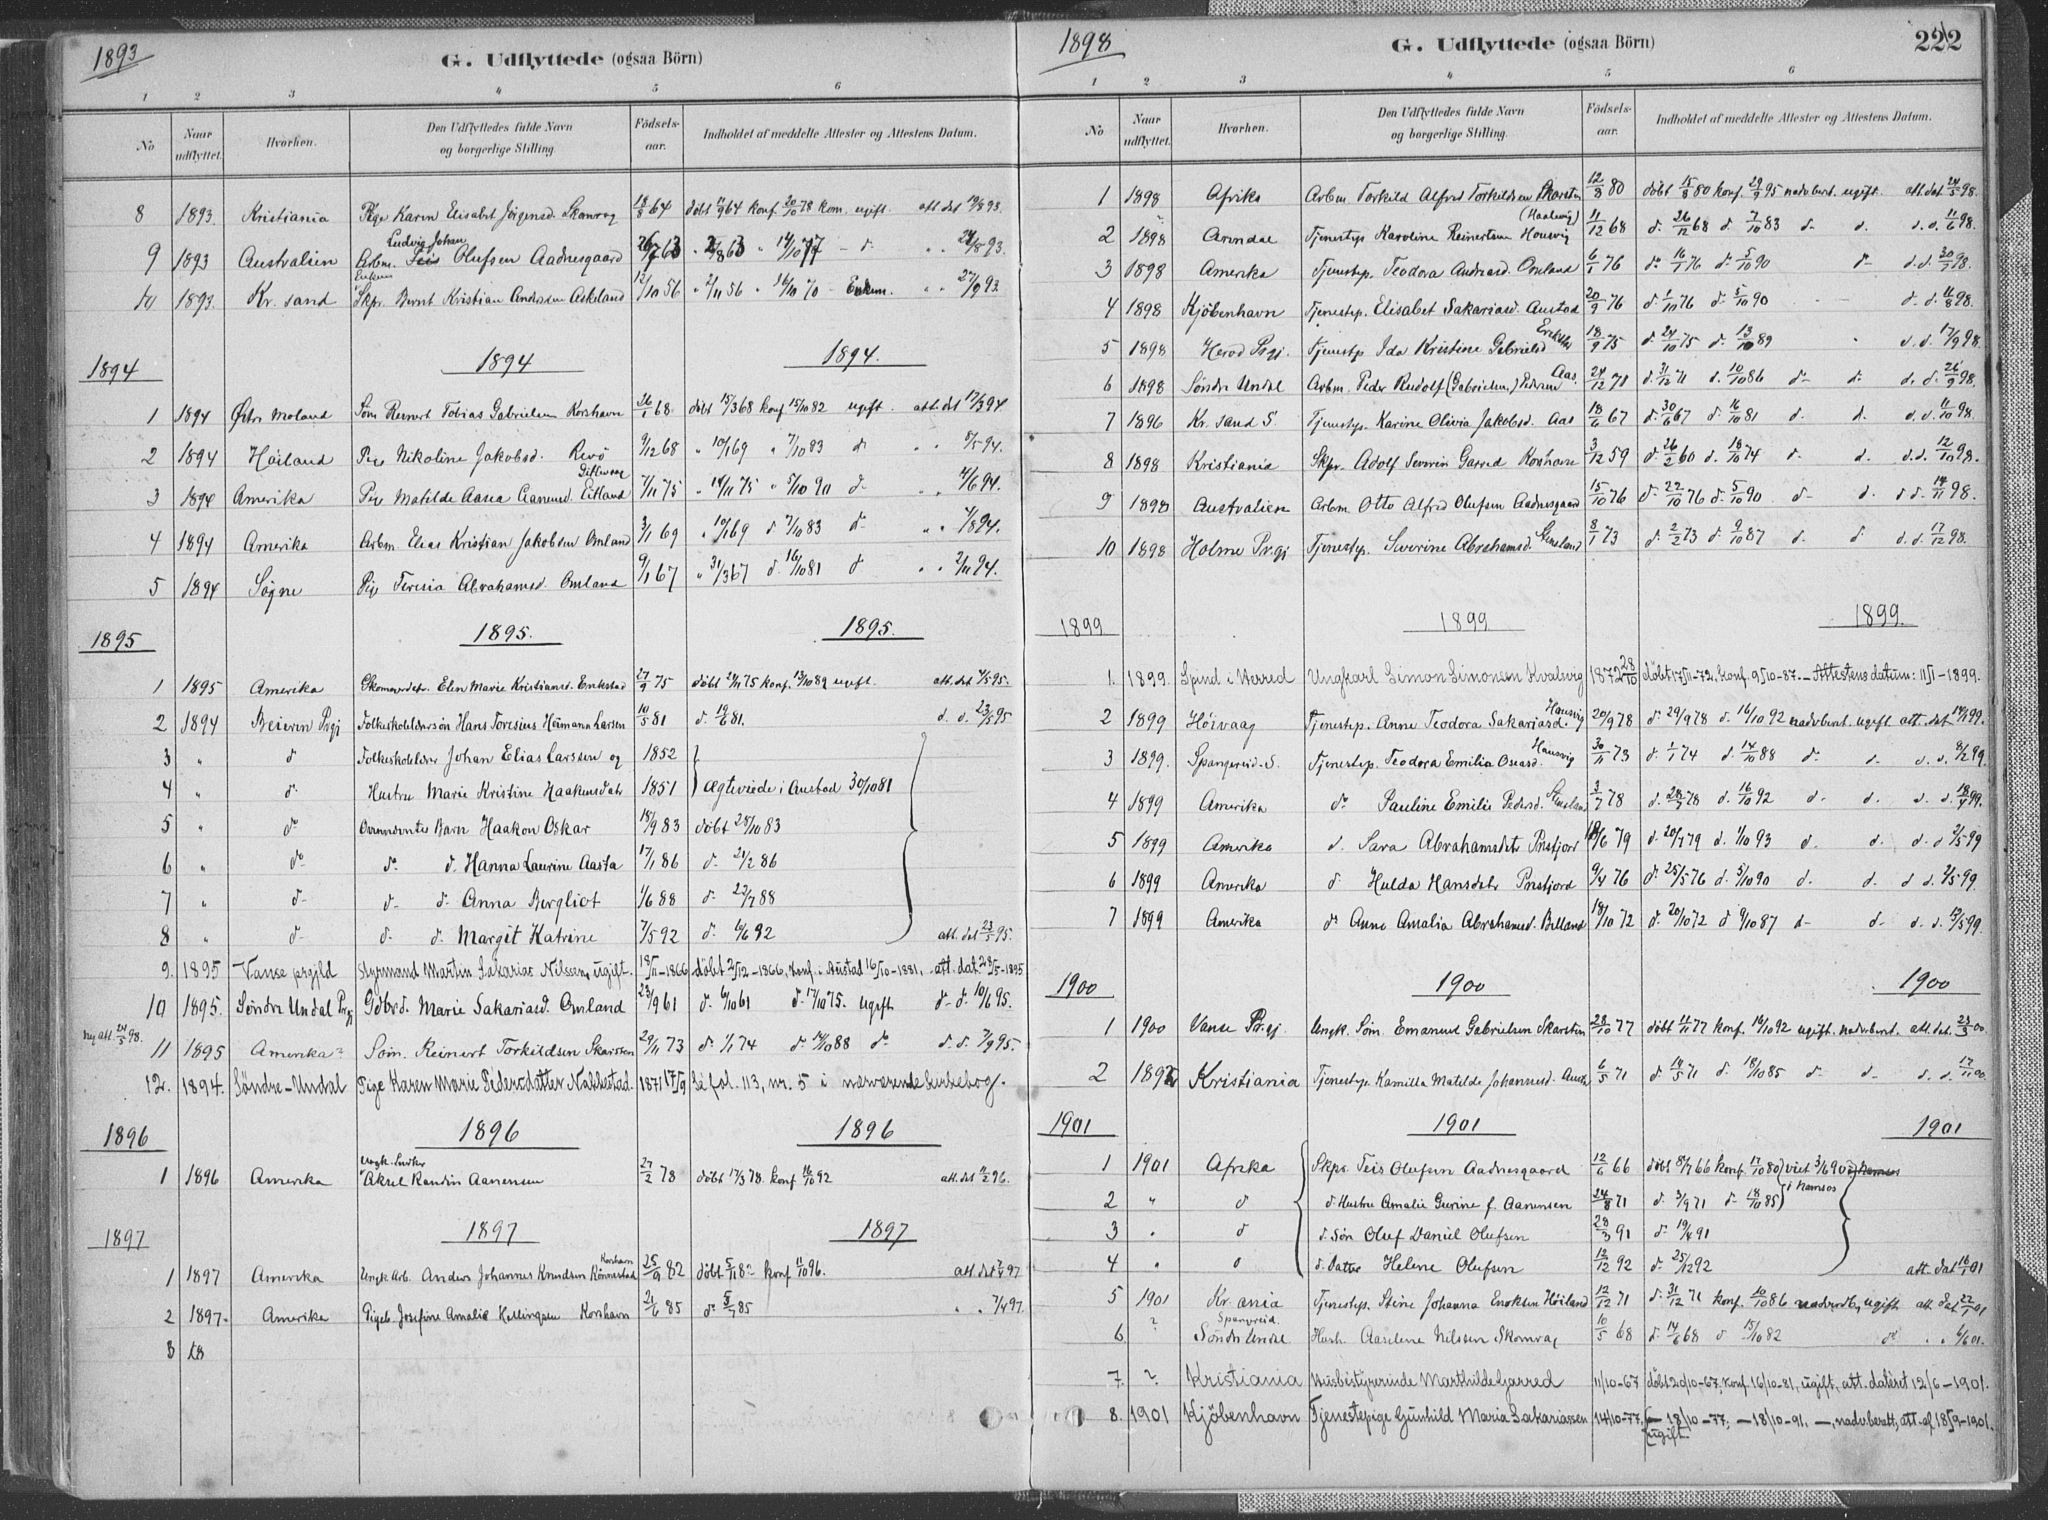 1893
G. Udflyttede (ogsaa Börn)
1 2 3 4 5 6
No
Naar udflyttet.
Hvorhen.
Den Udflyttedes fulde Navn og borgerlige Stilling.
Födsels-aar.
Indholdet af meddelte Attester og Attestens Datum.
8 1893 Kristiania Pige Karen Elisabet Jörgensd. Skomrag 18/8 64 döbt 11/9 64 konf. 20/10 78 kom. ugift. att. dat 19/8 93.
Ludvig Johan
9 1893 Australien Arbm. Teis Olufsen Aadnesgaard 26/7 63 " 2/8 63 " 14/10 77 - d " " 24/8 93.
Enkem.
10 1893 Kr. sand Skpr. Bernt Kristian Andersen Askeland 12/10 56 " 2/11 56 " 16/10 70 - Enkem. " " 27/9 93.
1894 1894 1894.
1 1894 Østr. Moland Söm. Reinert Tobias Gabrielsen Korshavn 26/1 68 döbt 15/3 68 konf 15/10 82 ugift. att. dat 17/3 94
2 1894 Höiland Pige Nikoline Jakobsd. Revö 9/12 68 " 10/1 69 " 7/10 83 d " " 8/5 94.
3 1894 Amerika Pige Matilde Aasea Aanensd. Eitland 7/11 75 " 14/11 75 " 5/10 90 d " " 4/6 94.
4 1894 Amerika Arbm Elias Kristian Jakobsen Omland 3/1 69 " 10/1 69 d 7/10 83 d " " 4/8 94.
5 1894 Søgne Pige Teresia Abrahamsd. Omland 9/1 67 " 31/3 67 d. 16/10 81 d " " 2/11 94.
1895 1895. 1895.
1 1895 Amerika Skomagerdtr. Elen Marie Kristiansd. Enkestad 27/9 75 döbt 21/11 75 konf. 13/10 89 ugift. att. dat 4/5 95.
2 1894 Beieren Prgj Folkeskolelærersön Hans Toresius Hermann Larsen 10/5 81 d. 19/6 81. d. d. 23/5 95
3 " d Folkeskolelærer Johan Elias Larssen og 1852
4 " d. Hustru Marie Kristine Haakensdatr 1851 Ægteviede i Austad 30/10 81
5 " do Ovennævntes Barn Haakon Oskar 18/9 83 döbt 28/10 83
6 " do do d. Hanna Laurine Aasta 17/1 86 d. 21/2 86
7 " d- d- d. Anna Bergliot 1/6 88 d. 22/7 88
8 " d- d- d. Margit Katrine 7/5 92 d. 6/6 92 att. dat 23/5 95.
9. 1895 Vanse prgjld Styrmand Martin Sakarias Nilssen, ugift. 18/11-1866 döbt 2/12-1866, konf. i Austad 16/10-1881, att. dat. 28/5-1895
10 1895. Söndre Undal Prgj Gdbrd. Marie Sakariasd. Omland 23/9 61 d. 6/10 61 d. 17/10 75. ugift d- d- 10/6 95.
ny att. 24/5 98.
11 1895 Amerika? Söm. Reinert Torkildsen Skarsten 29/11 73 d. 1/1 74 d. 14/10 88 do d. d. 7/9 95.
12. 1894. Söndre-Undal Pige Karen Marie Pedersdatter Nakkestad. 1871 17/9 Se fol. 113, nr. 5 i nærværende kirkebog.
1896 1896 1896
Ungk. Snedker
1 1896 Amerika Aksel Randin Aanensen 27/2 78 döbt 17/3 78. konf 16/10 92 att. dat 11/2 96.
1897 1897 1897
Korshavn
1 1897 Amerika Ungk. Arb. Anders Johannes Knudsen Rönnestad 25/9 82 döbt 5/11 82 konf 11/10 96. att. dat 2/4 97
2 1897. Amerika Pigeb. Josefine Amalie Kellingsen Korshavn 21/6 85 do 5/7 85 " " 7/4 97.
3 18
1898
G. Udflyttede (ogsaa Börn)
222
1 2 3 4 5 6
No
Naar udflyttet.
Hvorhen.
Den Udflyttedes fulde Navn og borgerlige Stilling.
Födsels-aar.
Indholdet af meddelte Attester og Attestens Datum.
1 1898 Afrika Arbm. Torkild Alfred Torkildsen Skarsten 12/8 80 döbt 15/8 80 konf. 29/9 95 nadvberet. ugift. att. dat 24/5 98.
(Haalevig)
2 1898 Arendal Tjenestep. Karoline Reinertsen Housvig 11/12 68 d. 26/12 68 d 7/10 83 d- d. d. d. 11/6 98.
3 1898 Amerika Tjenestep. Teodora Andreasd. Omland 6/1 76 do 16/1 76 d. 5/10 90 d- d. d. 30/7 98.
4 1898 Kjöbenhavn Tjenestep. Elisabet Sakariasd. Austad 20/9 76 d. 1/10 76 d. 5/10 90 d. d. 11/8 98.
5 1898 Herod Prgj. Tjenestp. Ida Kristine Gabrielsd 18/9 75 d. 24/10 75 d. 13/10 89 d. d. 17/9 98.
6 1898 Söndr Undal Arbm. Peder Rudolf (Gabrielsen) Aas. 24/12 71 d. 31/12 71 d. 10/10 86 do- do- d. d. 26/9 98.
7 1896 Kr. sand S. Tjenestep. Karine Olivia Jakobsd. Aas 18/6 67 d. 30/6 67 d. 16/10 81 d. d. d. d. 11/10 98.
8 1898 Kristiania Skpr. Adolf Severin Garred Korshavn 3/12 59 d. 26/2 60 d. 18/10 74 d. d. d. d. 12/10 98.
9 1898 Australien Arbm Otto Alfred Olufsen Aadnesgaard 15/10 76 d. 22/10 76 d. 5/10 90 d- d. d d. 14/11 98.
10 1898 Holme Prgj Tjenestep. Severine Abrahamsd. Stensland 8/1 73 d. 2/2 73 d 9/10 87 d. d d. d. 17/12 98.
1899 1899 1899.
1. 1899. Spind i Herred Ungkarl Simon Simonsen Kvalvig 1872 28/10 döbt 17/11-72. konf. 9/10-87. - Attestens datum: 11/1-1899.
2 1899 Höivaag Tjenestep. Anne Teodora Sakariasd. Hausvig 20/9 78 d. 29/9 78 d. 16/10 92 nadvberet. ugift att. dat 14/1 99.
3 1899. Spangereid S. Tjenestep. Teodora Emilia Osead. Hausvig 30/11 73 d. 1/1 74 d. 14/10 88 d. d. d. d. 8/2 99.
4 1899 Amerika do Pauline Emilie Pedersd. Stensland 3/7 78 d. 28/7 78 d. 16/10 92 d. d. d. d. 18/4 99.
5 1899 Amerika d. Sara Abrahamsdtr Pnsfjord 18/6 79 d. 20/7 79 d. 1/10 93 d. d. d. d 2/5 99
6 1899 Amerika d. Hulda Hansdtr Pnsfjord 9/4 76 d. 25/5 76 d. 5/10 90 d. d. d d. 2/5 99.
7 1899 Amerika do Anne Amalia Abrahamsd. Birkeland 18/10 72 d 20/10 72 d 9/10 87 d- d. d. d. 12/5 99.
1900 1900 1900
1 1900 Vanse Prgj. Ungk. Söm. Emanuel Gabrielsen Skarsten 28/10 77 döbt 11/11 77 konf. 16/10 92 ugift. nadvberet. att. dat. 23/3 00.
2 1895 Kristiania Tjenestep. Kamilla Matilde Johannesd. Austad 6/5 71 d. 14/5 71 d. 18/10 85 d. d. d. d. 17/11 00.
1901 1901 1901
1 1901 Afrika Skpr. Teis Olufsen Aadnesgaard 12/6 66 döbt 8/7 66 konf. 17/10 80 viet 3/6 90 i Namsos
2 " d d. Hustru Amalie Gurine f. Aanensen 24/8 71 d. 3/9 71 d. 18/10 85
3 " d d. Sön Oluf Daniel Olufsen 28/3 91 d. 19/4 91
4 " d d. Datter Helene Olufsen 12/12 92 d. 25/12 92 att. dat 16/1 01
5 1901 Kr. ania Tjenestep. Stine Johanna Enoksen Höiland 12/12 71 d. 31/12 71 konf. 10/10 86 nadvberdb. ugift att. dat 22/1 01
6 ? Spangreid. Söndr Undal Husb. Aaselene Nilssen Skomrag 10/5 68 d. 14/6 68 d 15/10 82 do " " 6/6 01.
7. ? Kristiania Husbestyrerinde Marthilde Gjarred 11/10-67 döbt 20/10-67, konf. 16/10-81, ugift, att. dateret 12/6-1901.
8. 1901 Kjöbenhavn Tjenestepige Gunhild Maria Sakariassen 14/10-77. - 18/10-77, - 18/10-91, -, nadvberett, att. af 18/9-1901.
ugift.